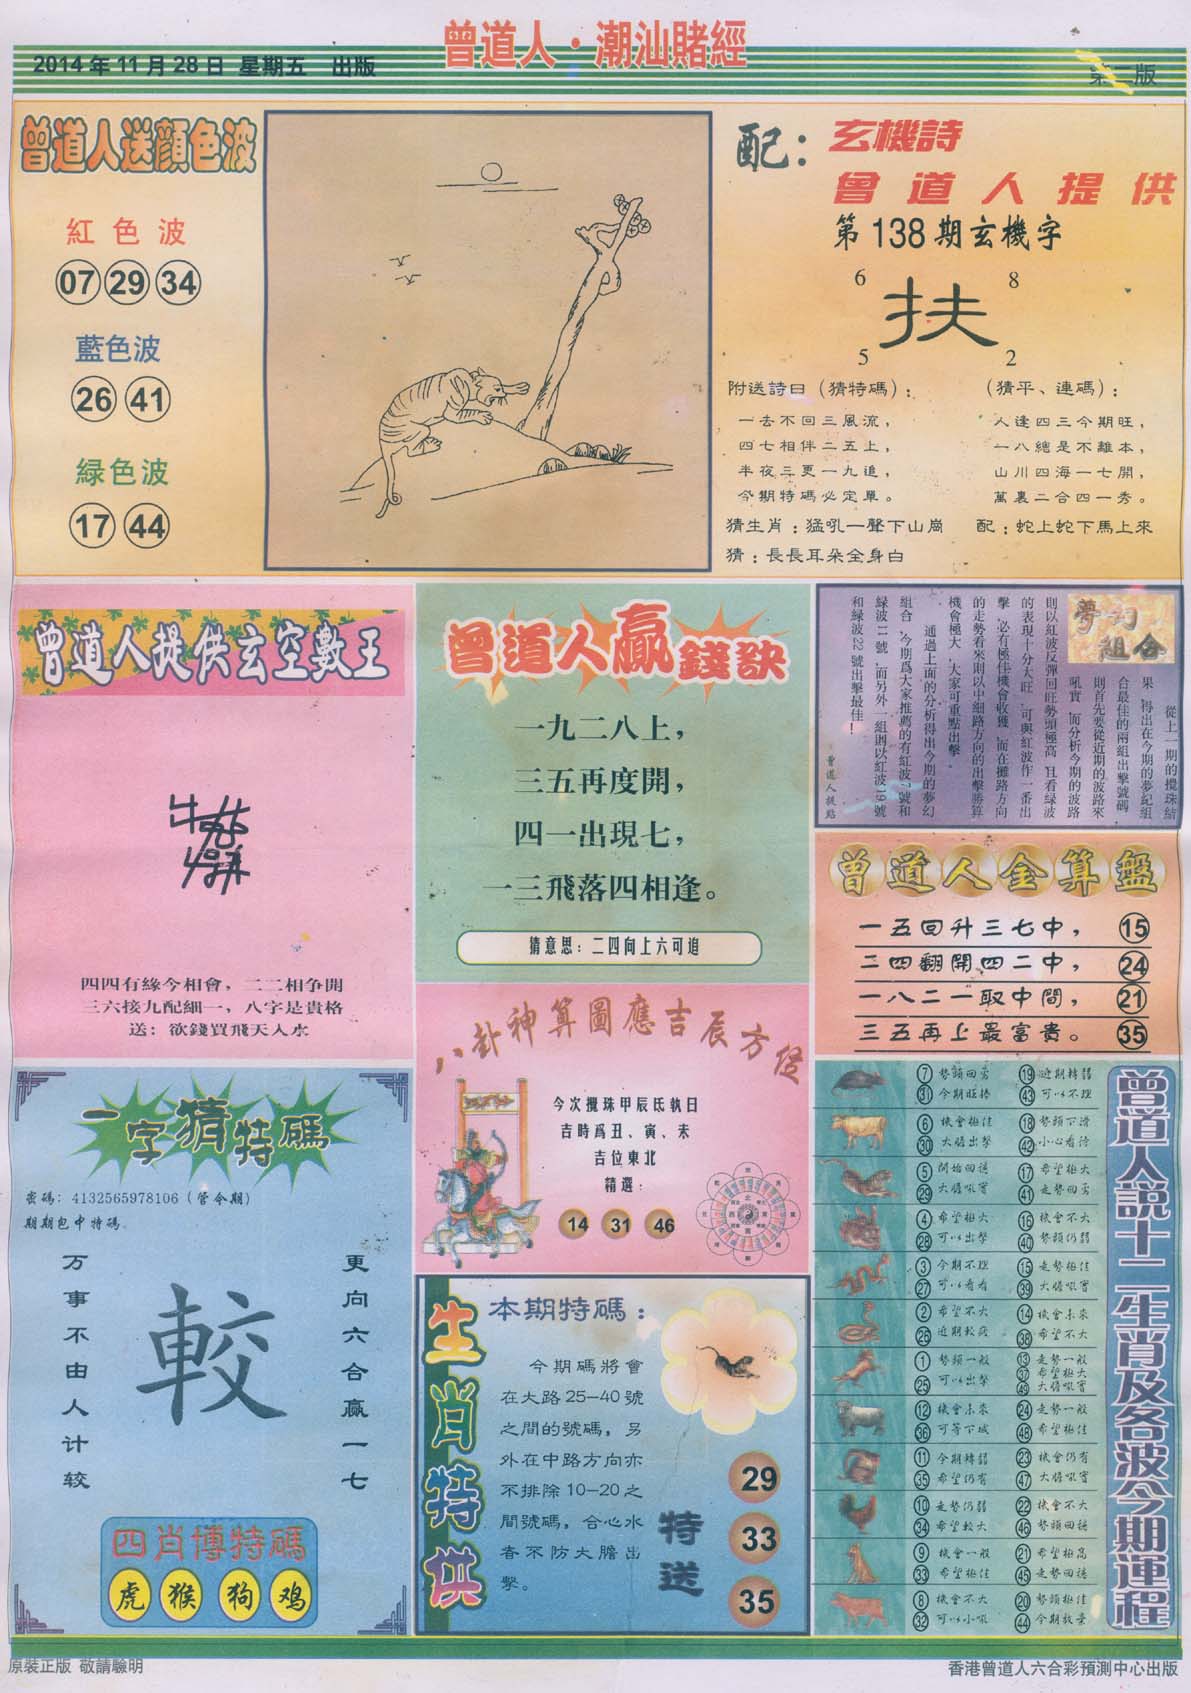 曾道人·潮汕賭經
2014年11月28日 星期五 出版
第二版
曾道人送顏色波
紅色波
07 29 34
藍色波
26 41
緑色波
17 44
配：玄機詩
曾道人提供
第138期玄機字
6 8
扶
5 2
附送詩曰（猜特碼）：
一去不回三風流，
四七相伴二五上，
半夜三更一九追，
今期特碼必定單。
（猜平、連碼）：
人逢四三今期旺，
一八總是不離本，
山川四海一七開，
萬裏二合四一秀。
猜生肖：猛吼一聲下山崗
配：蛇上蛇下馬上來
猜：長長耳朵全身白
曾道人提供玄空數王
四四有緣今相會，二二相争開
三六接九配細一，八字是貴格
送：欲錢買飛天入水
曾道人贏錢訣
一九二八上，
三五再度開，
四一出現七，
一三飛落四相逢。
猜意思：二四向上六可追
夢幻組合
從上一期的攪珠結
果，得出在今期的夢紀組
合最佳的兩組出擊號碼，
則首先要從近期的波路來
吼實，而分析今期的波路
則以紅波反彈回旺勢頭極高，且看緑波
的表現十分大旺，可與紅波作一番出
擊，必有極佳機會收獲，而在攤路方向
的走勢看來則以中細路方向的出擊勝算
機會極大，大家可重點出擊。
通過上面的分析得出今期的夢幻
組合，今期爲大家推薦的有紅波7號和
緑波11號，而另外一組則以紅波19號
和緑波22號出擊最佳！
曾道人提點
曾道人金算盤
一五回升三七中， 15
二四翻開四二中， 24
一八二一取中間， 21
三五再上最富貴。 35
八卦神算圖應吉辰方位
今次攪珠甲辰氐執日
吉時爲丑、寅、未
吉位東北
精選：
14 31 46
一字猜特碼
密碼：4132565978106（管令期）
期期包中特碼
万事不由人计较
較
更向六合赢一七
四肖博特碼
虎 猴 狗 鸡
生肖特供
本期特碼：
今期碼將會
在大路25—40號
之間的號碼，另
外在中路方向亦
不排除10—20之
間號碼，合心水
者不防大膽出
擊。
特送
29
33
35
曾道人説十二生肖及各波今期運程
7 勢頭回勇 19 近期轉弱
31 今期旺捧 43 可以不理
6 機會極佳 18 勢頭下滑
30 大膽出擊 42 小心看待
5 開始回穩 17 希望極大
29 大膽吼實 41 走勢回勇
4 希望極大 16 機會不大
28 可以出擊 40 勢頭仍弱
3 今期不理 15 走勢極佳
27 可以看看 39 大膽吼實
2 希望不大 14 機會未來
26 近期較疲 38 希望不大
1 勢頭一般 13 走勢一般
25 可以出擊 37 希望極大
49 大膽吼實
12 機會未來 24 走勢一般
36 可等下域 48 希望極佳
11 今期轉弱 23 機會仍有
35 希望仍有 47 大膽吼實
10 走勢仍弱 22 機會不大
34 希望較大 46 勢頭回穩
9 機會一般 21 希望極高
33 希望極佳 45 走勢回穩
8 機會不大 20 勢頭極佳
32 可以小吼 44 今期放棄
原裝正版 敬請驗明
香港曾道人六合彩預測中心出版